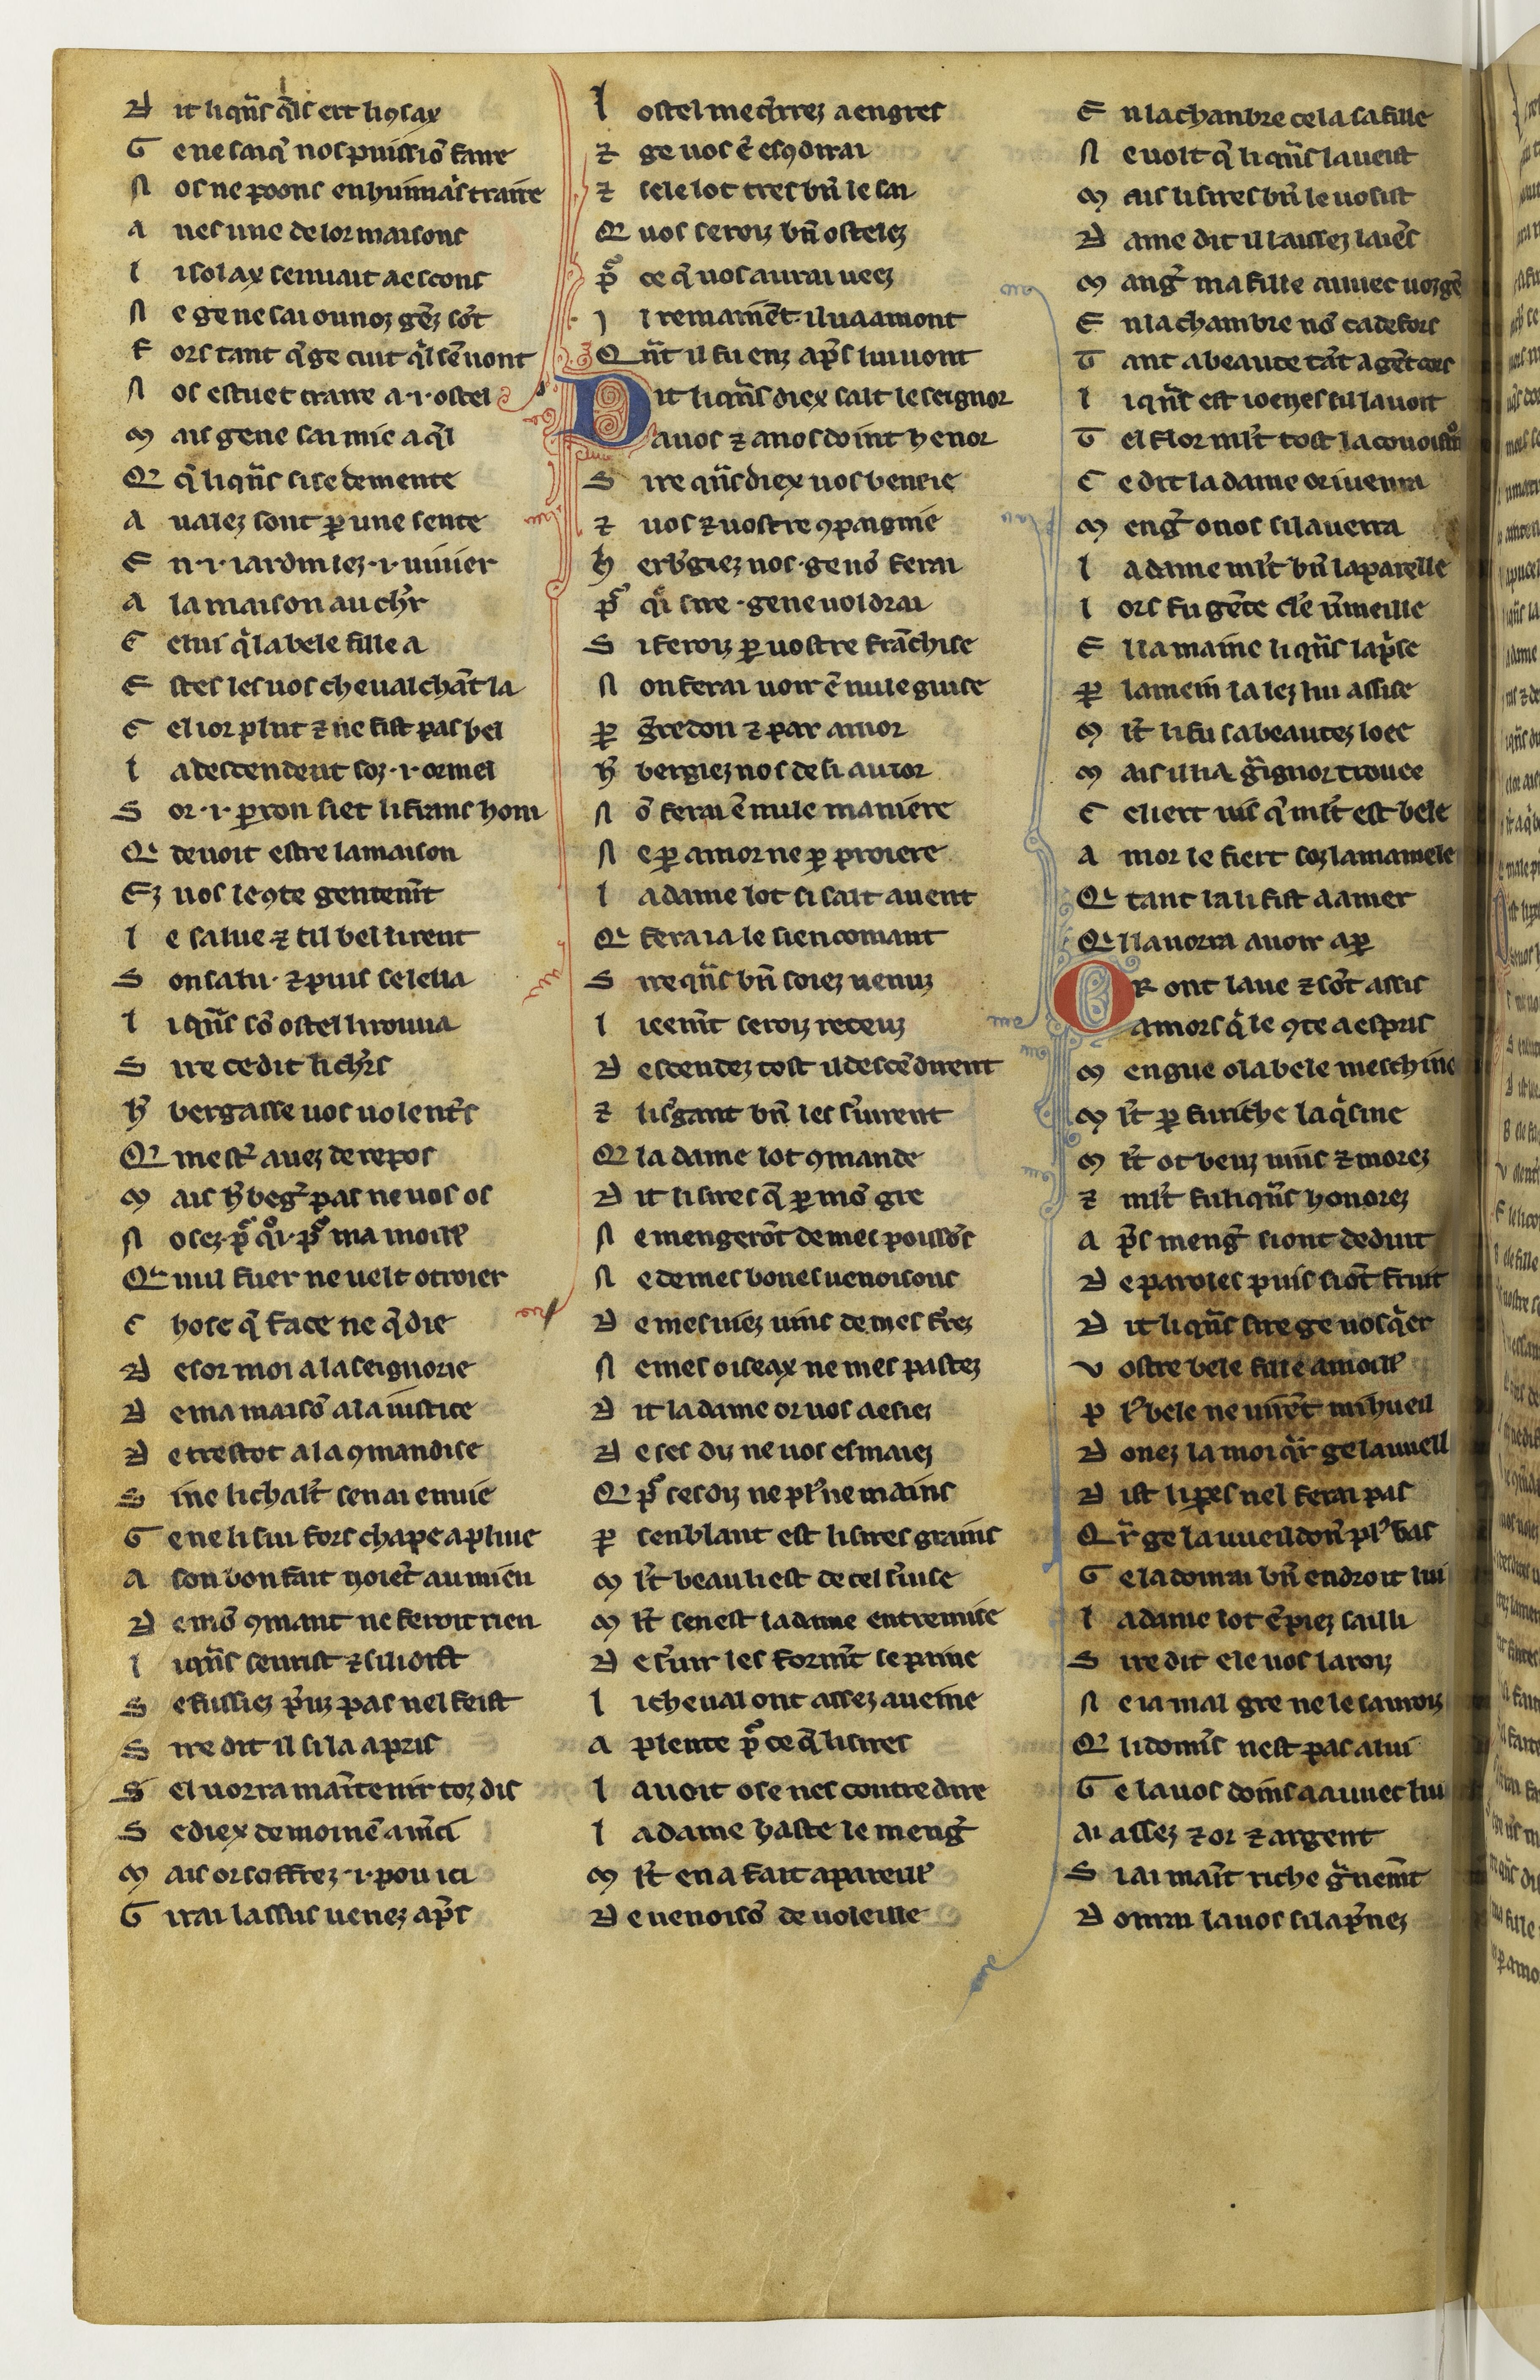 D it li qu̅s q̅ls ert li ꝯsax
G ene sai q̅ nos puissio̅ faire
N os ne poons enhuimais traire
A nes une de lor maisons
L i solax senvait a escons
N e ge ne sai ou noz ge̅z so̅t
F ors tant q̅ ge cuit q̅l se̅ vont
N os estuet traire a .i. ostel
M ais ge ne sai mie a q̅l
Q q̅ li qu̅s si se demente
A valez sont ꝑ une sente
E n .i. iardin lez .i. vivier
A la maison au chr̅
C elui q̅ la bele fille a
E stes les vos chevalcha̅t la
C el ior plut ⁊ ne fist pas bel
L a descendent soz .i. ormel
S or .i. ꝑron siet li frans hom
Q devoit estre la maison
Ez vos le ꝯte gentem̅t
L e salue ⁊ cil bel li rent
S on salu . ⁊ puis se leva
L i qu̅s so̅ ostel li rouva
S ire ce dit li chr̅s
H̅ bergasse vos volent̅s
Q mest̅ avez de repos
M ais h̅beg̅ pas ne vos os
N osez . p̅ q̅i . p̅ ma moill̅
Q nul fuer ne velt otroier
C hose q̅ face ne q̅ die
D esor moi a la seignorie
D e ma maiso̅ a la iustice
D e trestot a la ꝯmandise
S ine li chalt̅ sen ai envie
G e ne li sui fors chape a pluie
A son bon fait noie̅t au mien
D e mo̅ ꝯmant ne feroit rien
L i qu̅s senrist ⁊ si li dist
S e fussiez p̅uz pas nel feist
S ire dit il si la apris
S el vorra mai̅tenir toz dis
S e diex de moi ne̅ a m̅ci
M ais or soffrez .i. pou ici
G irai lassus venez ap̅s
L ostel me q̅rrez a engres
⁊ ge vos e̅ esꝯdirai
⁊ sele lot tres bn̅ le sai
Q vos seroiz bn̅ ostelez
P̅ ce q̅ vos aurai veez
I l remaine̅t . il va amont
Qn̅t il fu enz ap̅s lui vont
Dit li qu̅s diex salt le seignor
a vos ⁊ a nos doint henor
S ire qu̅s diex vos beneie
⁊ vos ⁊ vostre ꝯpaignie
H erb̅giez nos . ge no̅ ferai
P̅ q̅i sire . ge ne voldrai
S i feroiz ꝑ vostre fra̅chise
N on ferai voir e̅ nule guise
Ꝑ g̅redon ⁊ par amor
H̅ bergiez nos desi au ior
N o̅ ferai e̅ nule maniere
N e ꝑ amor ne ꝑ proiere
L a dame lot si salt avent
Q fera ia le sien comant
S ire qu̅s bn̅ soiez venuz
L ieem̅t seroiz receuz
D escendez tost il desce̅dirent
⁊ li s̅gant bn̅ les s̅virent
Q la dame lot ꝯmande
D it li sires q̅ ꝑ mo̅ gre
N e mengero̅t de mes poisso̅s
N e de mes bones venoisons
D e mes viez vins de mes frez
N e mes oiseax ne mes pastez
D it la dame or vos aesiez
D e ses diz ne vos esmaiez
Q p̅ ses diz ne pl̅ ne mains
Ꝑ senblant est li sires grains
M lt̅ beau li est de cel s̅vise
M lt̅ senest la dame entremise
D e s̅vir les form̅t se paine
L i cheval ont assez aveine
A plente p̅ ce q̅ li sires
L avoit ose nes contredire
L a dame haste le meng̅
M lt̅ en a fait apareill̅
D e venoiso̅ de voleille
E n la chanbre cela sa fille
N e volt q̅ li qu̅s la veist
M ais li sires bn̅ le vosist
D ame dit il laissez laie̅s
M ang̅ ma fille auvec voz ge̅
E n la chambre no̅ ca defors
T ant a beaute ta̅t a ge̅t cors
L i qu̅s est ioenes sil lavoit
T el flor mlt̅ tost la covoit
C e dit la dame or i venra
M eng̅ o nos si la verra
L a dame mlt̅ bn̅ laparelle
L ors fu ge̅te cle̅ v̅meille
E l la maine li qu̅s la p̅se
Ꝑ la mein̅ la lez lui assise
M lt̅ li fu sa beautez loee
M ais il li a g̅ignor trovee
C e li ert vis q̅ mlt̅ est bele
A mor le fiert soz la mamele
Q tant la li fist a amer
Q il a vorra avoir a ꝑ
OR ont lave ⁊ so̅t assis
amors q̅ le ꝯte a espris
M engue o la bele meschine
M lt̅ ꝑ fu riche la q̅sine
M lt̅ ot beuz vins ⁊ morez
⁊ mlt̅ fu li qu̅s honorez
A p̅s meng̅ si ont deduit
D e paroles puis si o̅t fruit
D it li qu̅s sire ge vos q̅er
V ostre bele fille a moill̅
P l̅ bele ne vire̅t mi hueil
D onez la moi q̅r ge la vueil
D ist li peres nel ferai pas
Q r̅ ge la vueil don̅ pl̅ bas
G e la donrai bn̅ endroit lui
L a dame lot e̅ piez sailli
S ire dit ele vos laroiz
N e ia mal gre ne le sauroiz
Q li domi̅s nest pas a lui
G e la vos doins aauvec lui
Ai assez ⁊ or ⁊ argent
S i ai mai̅t riche g̅nem̅t
D onrai la vos si la p̅nez